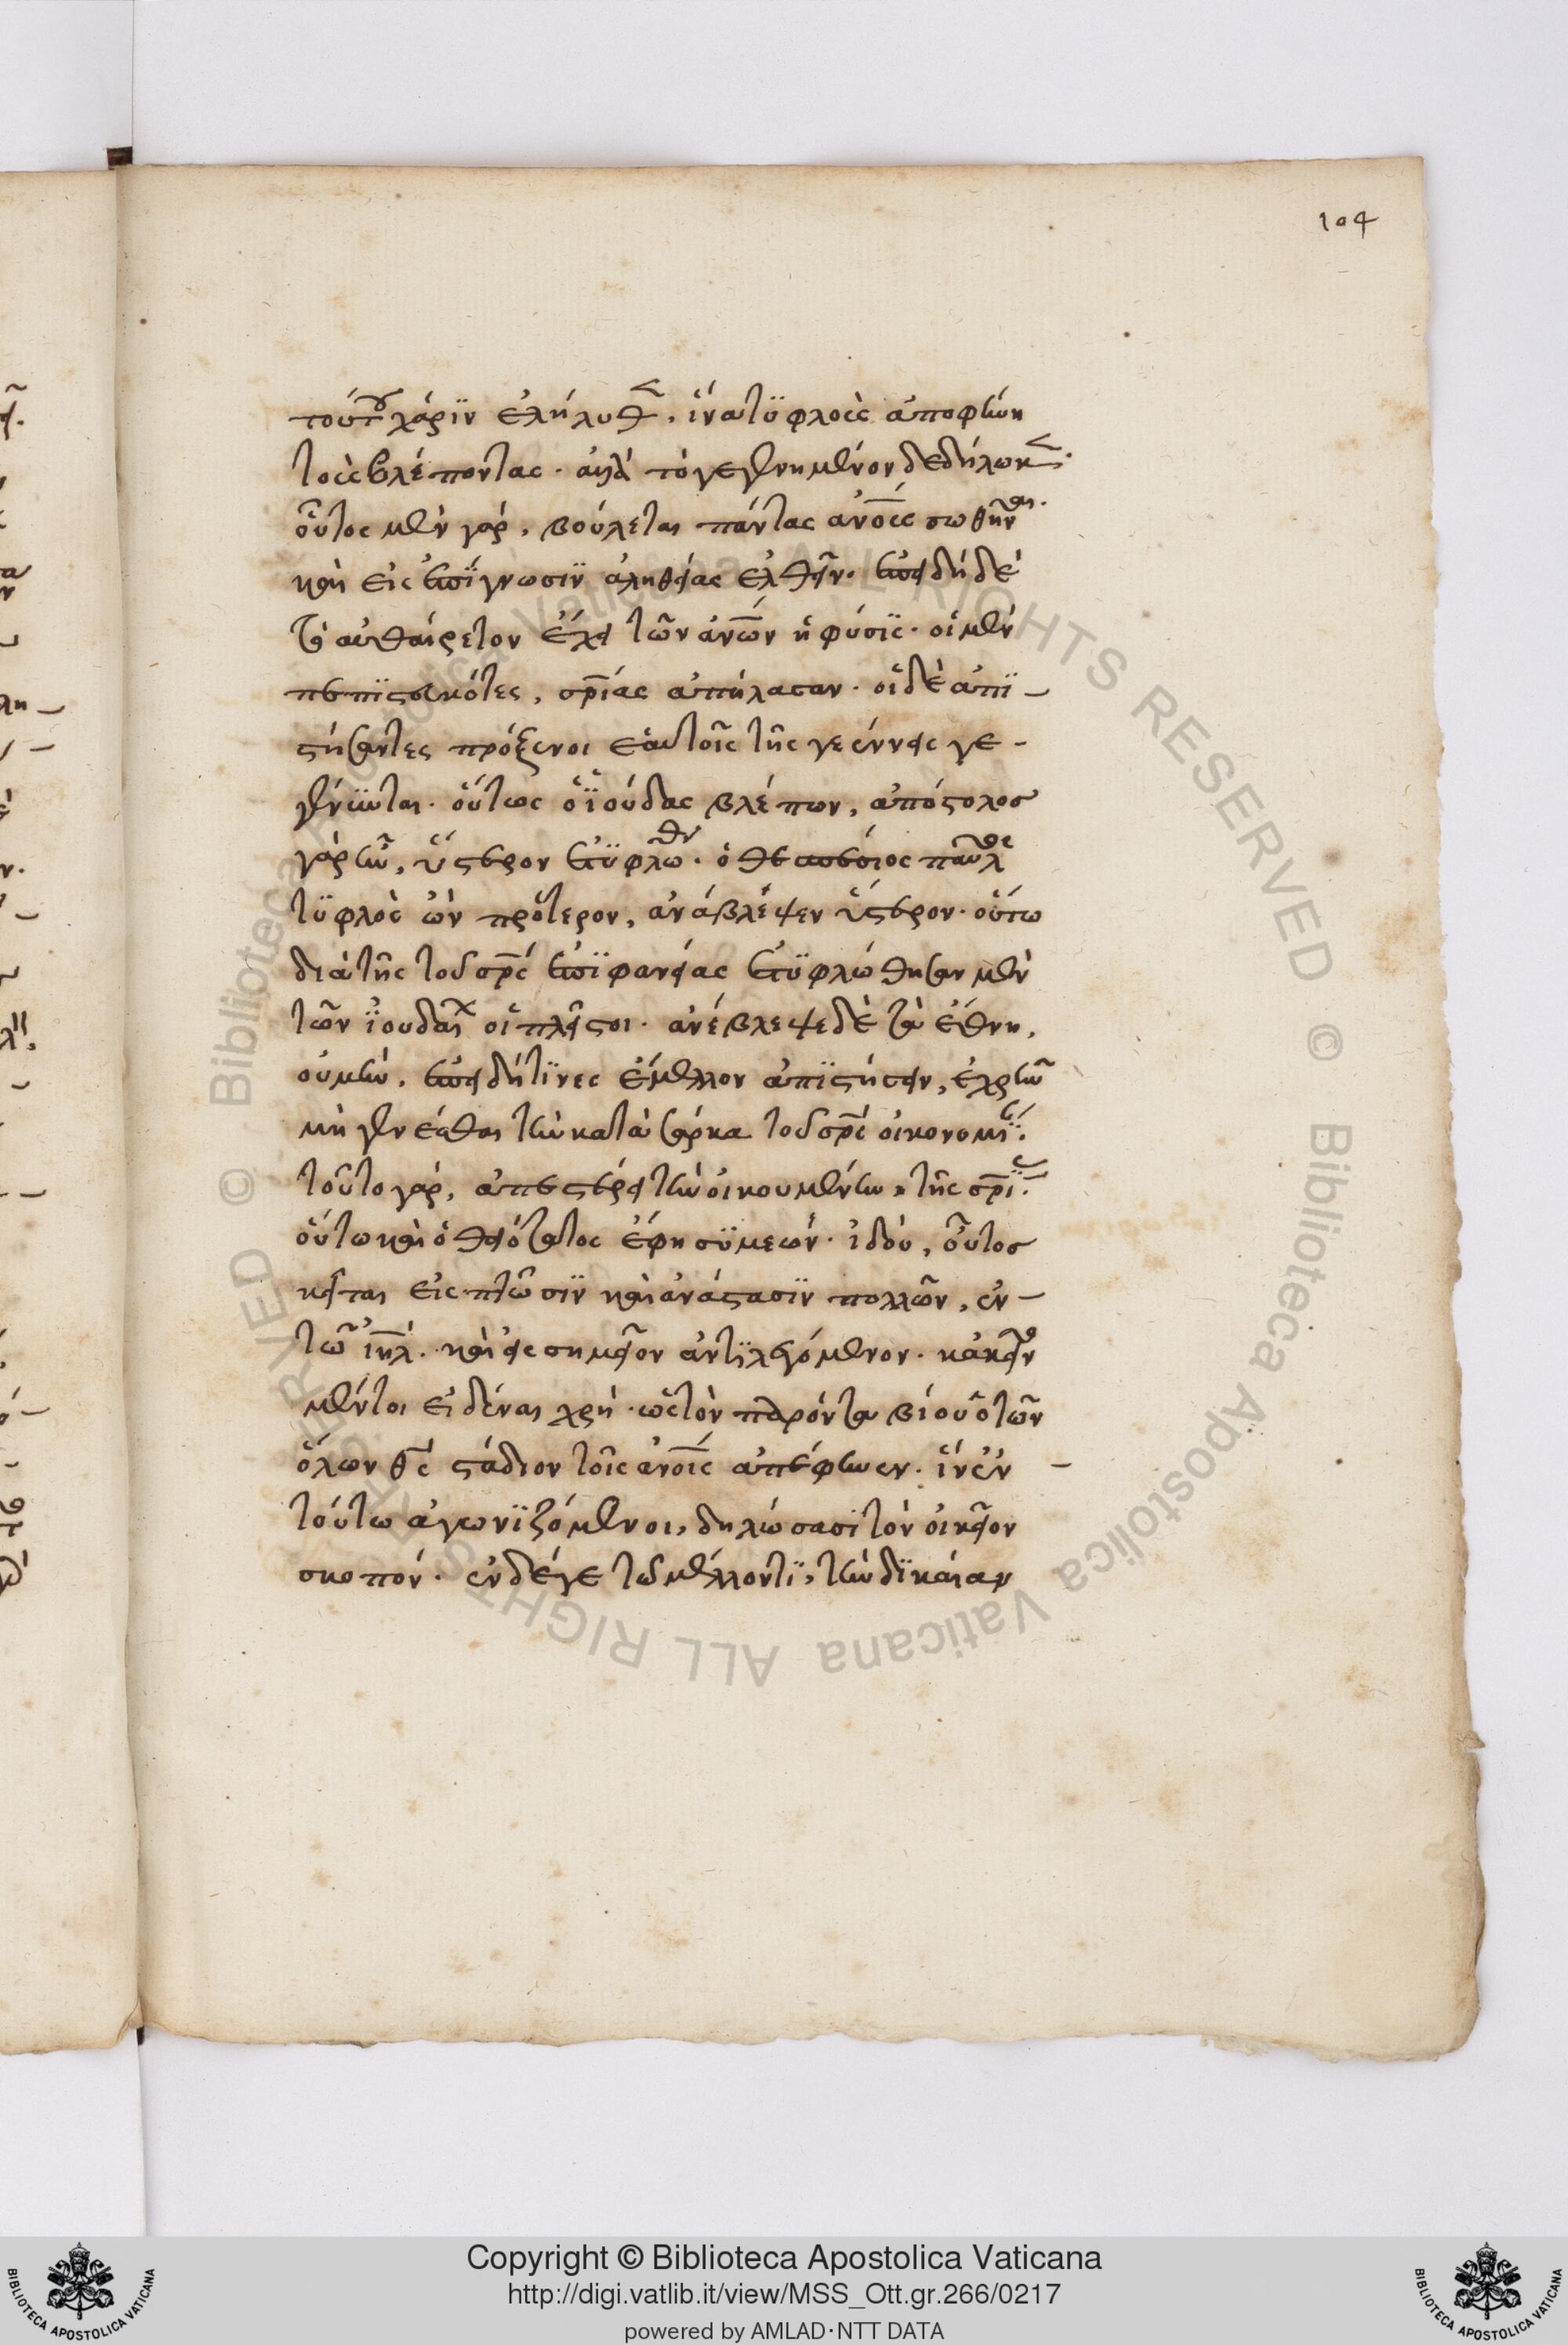 104
τούτου χάριν ἐλήλυθεν, ἵνα τυφλοὺς ἀποφήνῃ
τοὺς βλέποντας· ἀλλὰ τὸ γεγενημένον δεδήλωκεν·
οὗτος μὲν γάρ, βούλεται πάντας ἀνο̅υ̅ς σωθῆναι·
καὶ εἰς ἐπίγνωσιν ἀληθείας ἐλθεῖν· ἐπειδὴ δὲ
τὸ αὐθαίρετον ἔχει τῶν ἀν̅ω̅ν ἡ φύσις· οἱ μὲν
πεπιστευκότες, σρ̅ίας ἀπήλασαν· οἱ δὲ ἀπι-
στήσαντες πρόξενοι ἑαυτοῖς τῆς γεέννης γε-
γένηνται· οὕτως ὁ ἰούδας βλέπων, ἀπόστολος
γὰρ ἦν, ὕστερον ἐτυφλώθη· ὁ θεσπέσιος παῦλος
τυφλὸς ὢν πρότερον, ἀνάβλέψεν ὕστερον· οὕτω
διὰ τῆς τοῦ σρ̅ς ἐπιφανείας ἐτυφλώθησαν μὲν
τῶν ἰουδαίων οἱ πλεῖστοι· ἀνέβλεψε δὲ τὰ ἔθνη,
οὐ μὴν, ἐπειδή τινες ἔμελλον ἀπιστήσειν, ἐχρῆν
μὴ γενέσθαι τὴν κατὰ σάρκα τοῦ σρ̅ς οἰκονομίαν·
τοῦτο γάρ, ἀπεστέρει τὴν οἰκουμένην, τῆς σρ̅ίας·
οὕτω καὶ ὁ θειότατος ἔφη συμεών· ἰδού, οὗτος
κεῖται εἰς πτῶσιν καὶ ἀνάστασιν πολλῶν, ἐν
τῶ ἰη̅λ· καὶ εἰς σημεῖον ἀντιλεγόμενον· κἀκεῖνο
μέντοι εἰδέναι χρή· ὡς τὸν παρόντα βίον ὁ τῶν
ὅλων θ̅ς στάδιον τοῖς ἀνο̅ι̅ς ἀπέφηνεν· ἵν' ἐν
τούτω ἀγωνιζόμενοι, δηλώσασι τὸν οἰκεῖον
σκοπόν· ἐν δέ γε τῶ μέλλοντι, τὴν δικαίαν
Copyright © Biblioteca Apostolica Vaticana
http://digi.vatlib.it/view/MSS_Ott.gr.266/0217
powered by AMLAD·NTT DATA